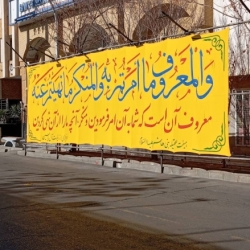 والمعروف ما امرتم به والمنکر ما نهیتم عنه
معروف آن است که شما به آن امر فرمودین و منکر آنچه را از آن نهی کردین